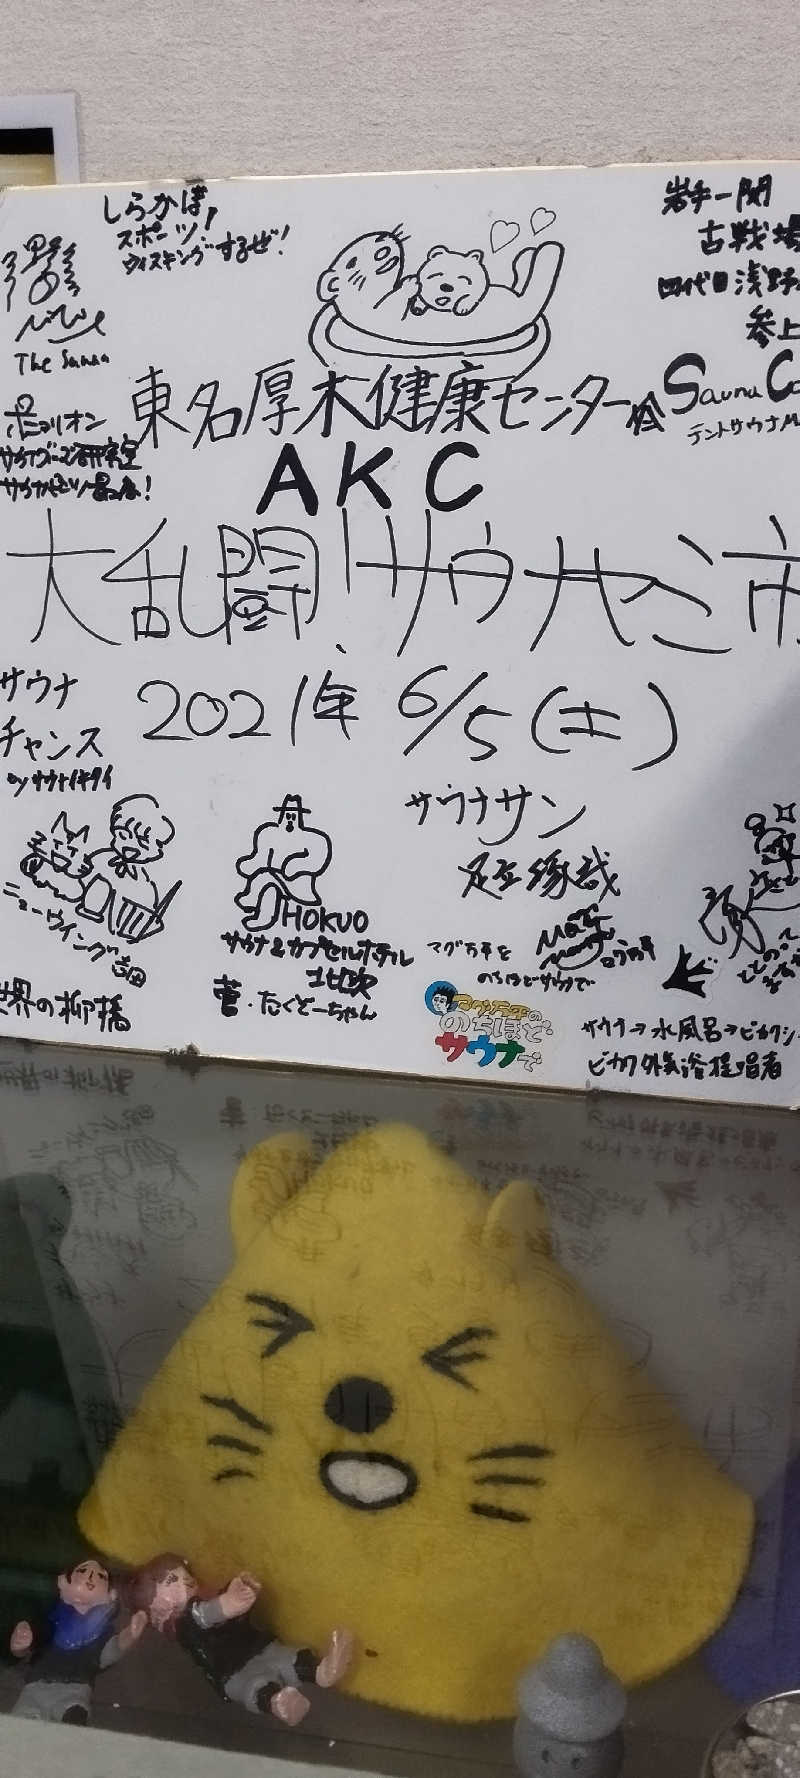 しらかば!
スポーツ
ウィスキングするぜ!
The Sauna
岩手一関
古戦場
四代目浅野
参上
東名厚木健康センター
Sauna Ca
テントサウナ
AKC
サウナグッズ研究室
大乱闘!サウナヤミ市
2021年 6/5(土)
サウナ
チャンス
by サウナイキタイ
サウナサン
ニューウイング 吉田
HOKUO
サウナ&カプセルホテル
北欧
マグ万平を
のちほどサウナで
マグ万平
マグ万平の
のちほど
サウナで
世界の柳橋
サウナ→水風呂→ピカクシ
ピカクシ外気浴提唱者